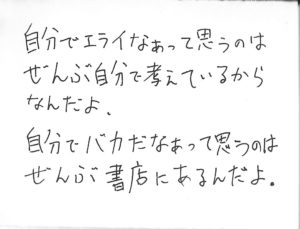 自分でエライなあって思うのは
ぜんぶ自分で考えているから
なんだよ、
自分でバカだなあって思うのは
ぜんぶ書店にあるんだよ。